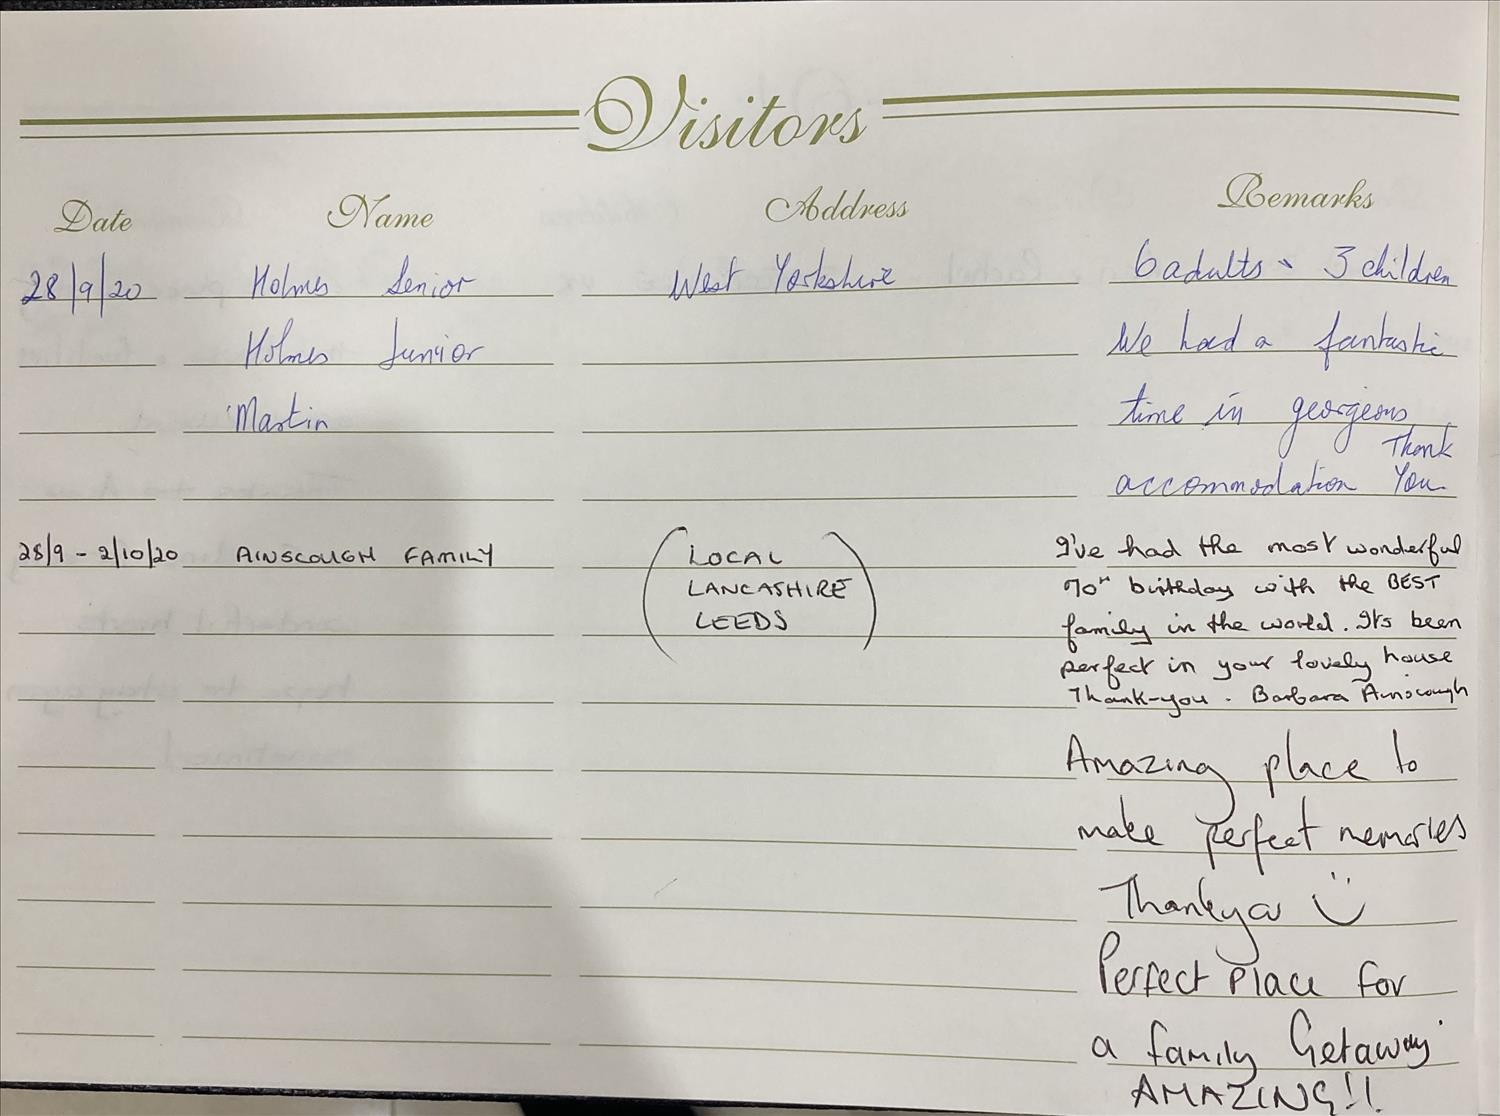 Visitors
Date Name Address Remarks
28/9/20 Holmes Senior West Yorkshire 6 adults 3 children
Holmes Junior We had a fantastic
Martin time in georgeous
accommodation Thank You
28/9 - 2/10/20 AINSCOUGH FAMILY LOCAL I've had the most wonderful
LANCASHIRE 70th birthday with the BEST
LEEDS family in the world. Its been
perfect in your lovely house
Thank-you. Barbara Ainscough
Amazing place to
make perfect memories
Thankyou
Perfect Place for
a family Getaway
AMAZING!!